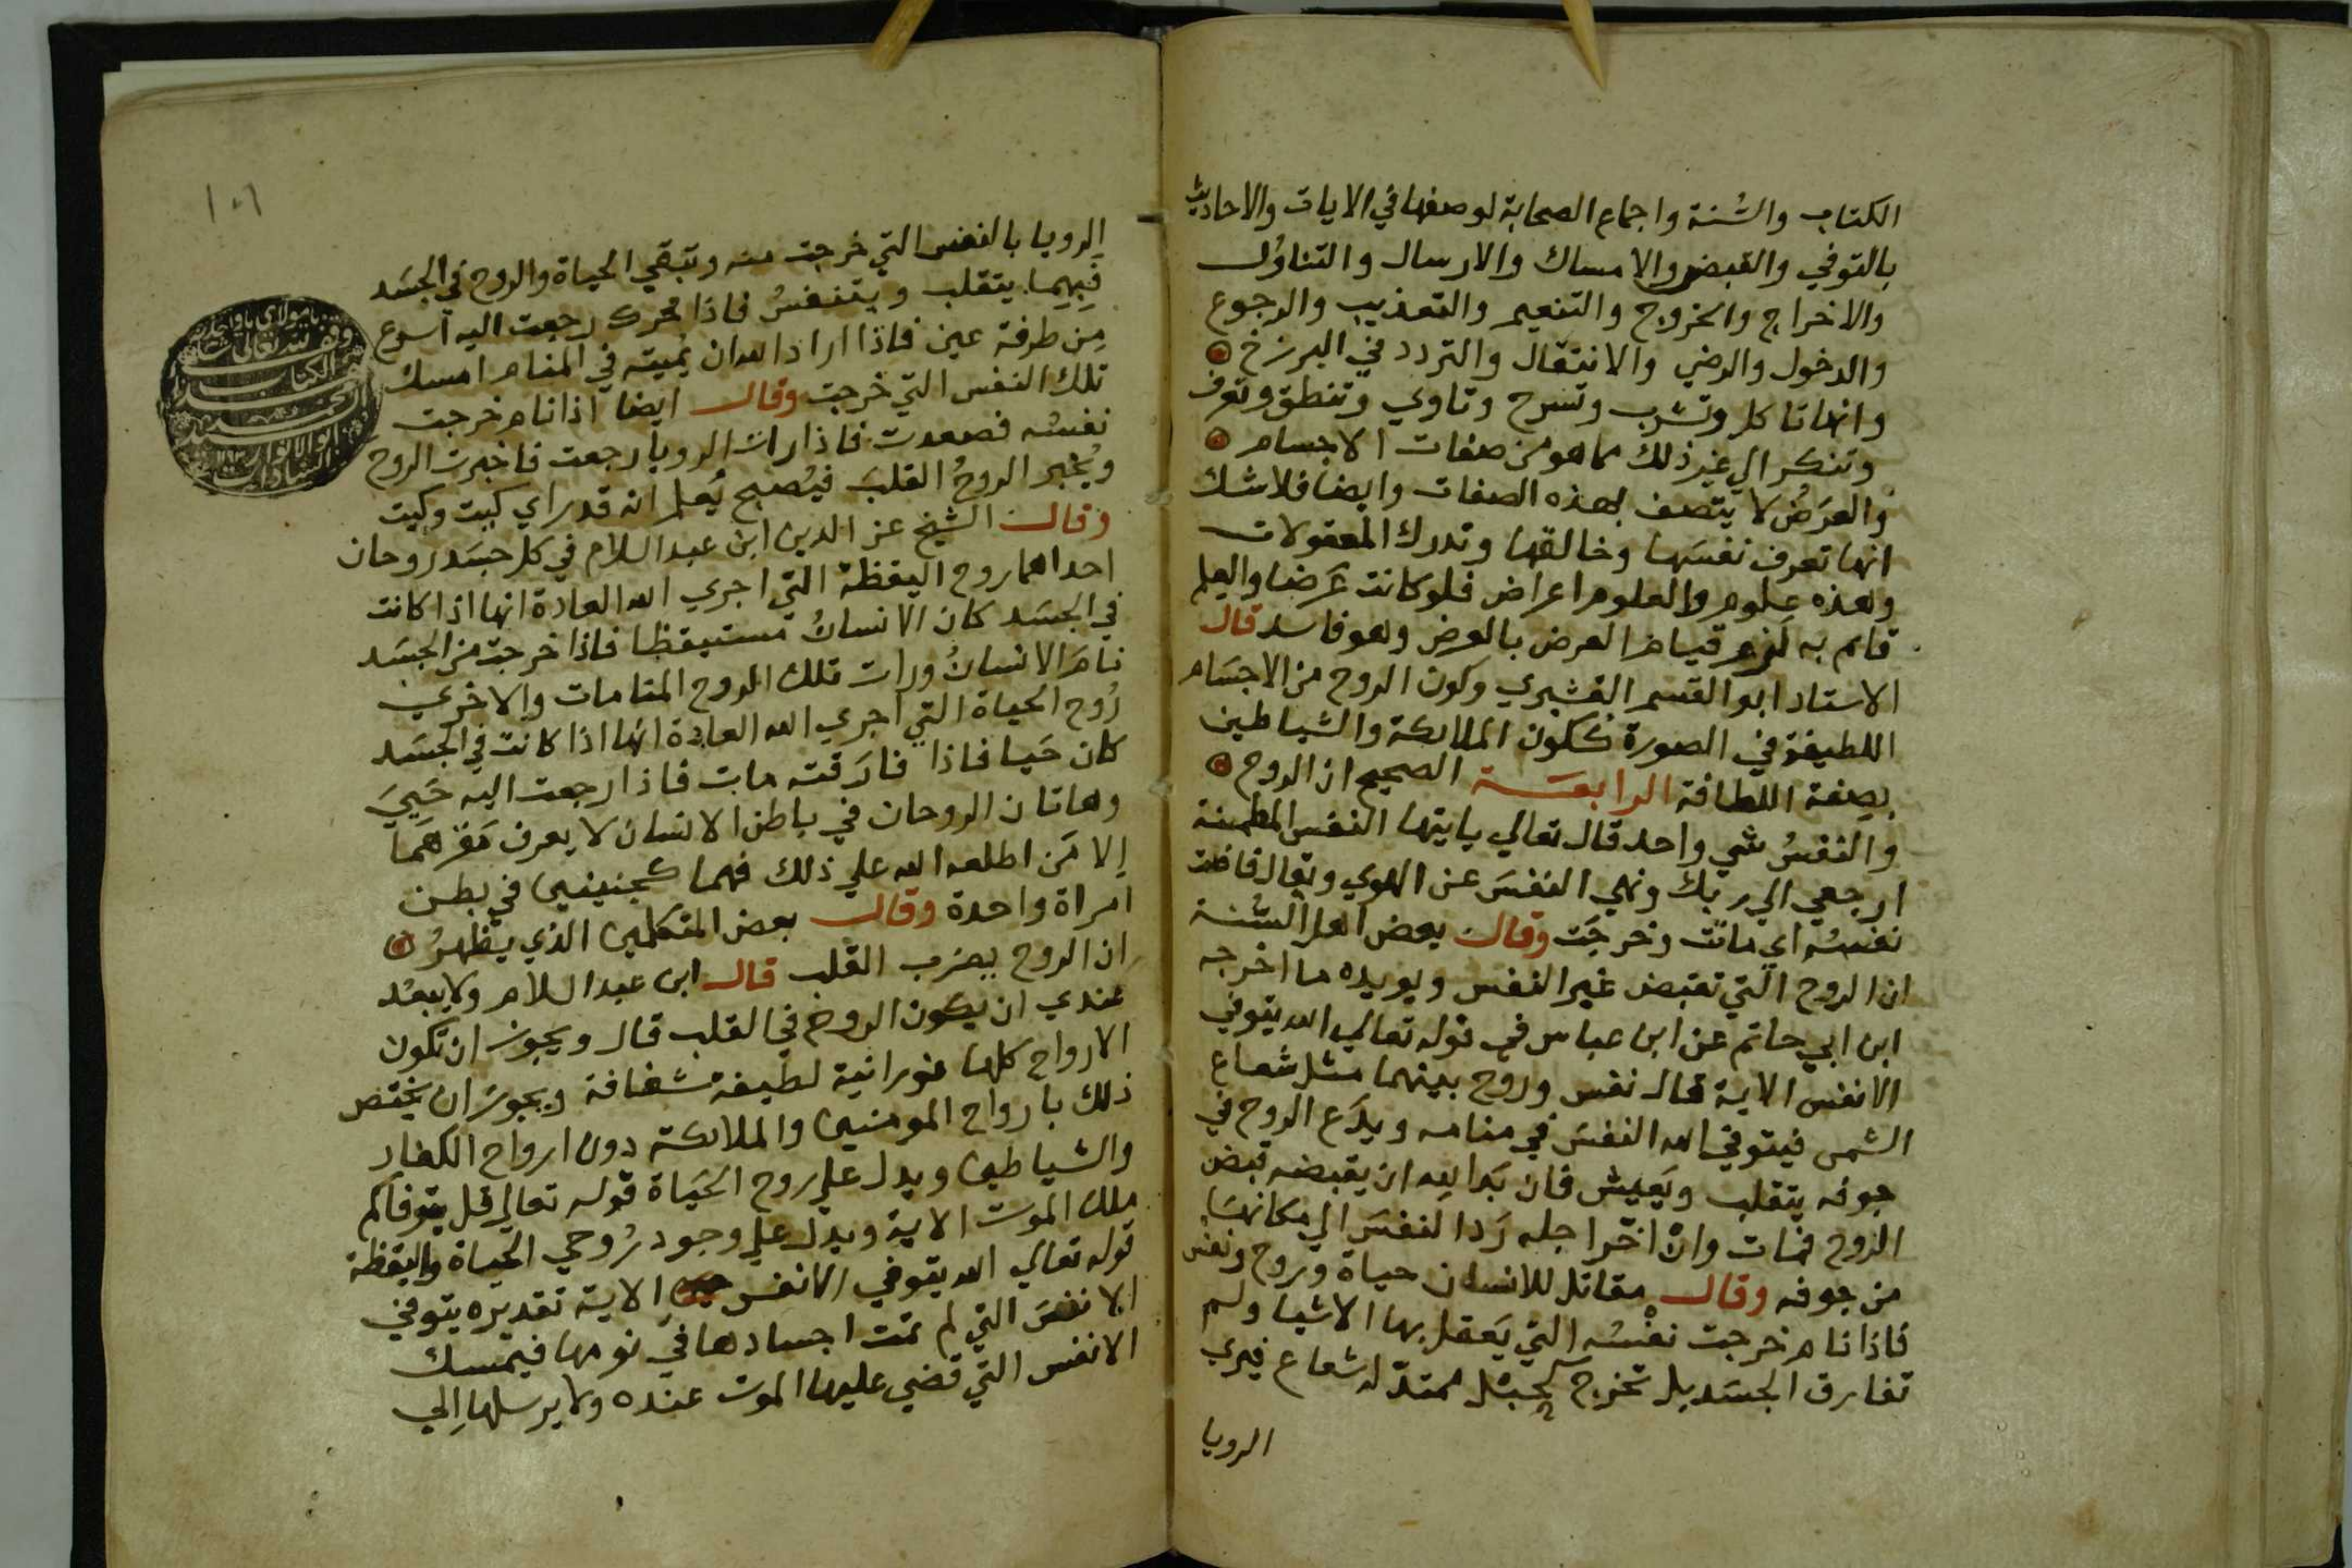 الكتاب والسُنة واجماع الصحابة لوصفها في الايات والاحاديث
بالتوفي والقبض والامساك والارسال والتناوُل
والاخراج والخروج والتنعيم والتعذيب والرجوع
والدخول والرضي والانتقال والتردد في البرزخ
وانها تاكل وتشرب وتسرح وتاوي وتنطق وتعرف
وتنكر الي غير ذلك مما هو من صفات الاجسام
والعَرَضُ لا يتصف بهذه الصفات وايضا فلا شك
انها تعرف نفسَها وخالقها وتدرك المعقولات
وهذه علوم والعلوم اعراض فلو كانت عَرَضا والعلم
قايم به لزم قيام العرض بالعرض وهو فاسد قال
الاستاد ابو القسم القشيري وكون الروح من الاجسَام
اللطيفة في الصورة ككون الملايكة والشياطين
بصفة اللطافة الرابعَة الصحيح ان الروح
والنفسُ شي واحد قال تعالي يايتها النفس المطمنة
ارجعي الي ربك ونهي النفسَ عن الهوي ويقال فاضت
نفسُه اي ماتت وخرجَت وقال بعض اهل السُنة
ان الروح التي تقبض غير النفس ويويده ما اخرجه
ابن ابي حاتم عن ابن عباس في قوله تعالي الله يتوفي
الانفس الاية قال نفس وروح بينهما مثل شعاع
الشمس فيتوفي الله النفسَ في منامه ويدَع الروح في
جوفه يتقلب ويَعيش فان بَدا لله ان يقبضه قبض
الروح فمات وان اخّر اجله رَد النفسَ الي مكانهَا
من جوفه وقال مقاتل للانسان حياة وروح ونفس
فاذا نام خرجت نفْسُه التي يَعقل بها الاشيا ولم
تفارق الجسَد بل تخرج كحبْل ممتدّ له شعاع فيري
الرويا
١٠٦
الرويا بالنفس التي خرجت منه وتبقي الحياة والروح في الجسَد
فِبِهِما يتقلب ويتنفسُ فاذا حُرك رجعت اليه اسرع
مِن طرفة عين فاذا اراد الله ان يُميته في المنام امسك
تلك النفس التي خرجت وقال ايضا اذا نام خرجت
نفسُه فصعدت فاذا رات الرويا رجعت فاخبرت الروح
ويُخبر الروحُ القلبَ فيُصبح يَعلم انه قد راي كيت وكيت
وقال الشيخ عز الدين ابن عبد السلام في كل جسَد روحان
احداهما روح اليقظة التي اجري الله العادة انها اذا كانت
في الجسَد كان الانسانُ مستيقظا فاذا خرجت من الجسَد
نامَ الانسانُ ورات تلك الروح المنامات والاخري
رُوح الحياة التي اجري الله العادة انها اذا كانت في الجسَد
كان حَيا فاذا فارَقته مات فاذا رجعت اليه حَيِيَ
وهاتان الروحان في باطن الانسان لا يعرف مَقرّهمَا
إلا مَن اطلعه الله علي ذلك فهما كجنينين في بطن
امراة واحدة وقال بعض المتكلمين الذي يَظهرُ
ان الروح بيقرب القلب قال ابن عبد السلام ولا يبعُد
عندي ان يكون الروح في القلب قال ويجوز ان تكون
الارواح كلها نورانية لطيفة شفافة ويجوز ان يختص
ذلك بارواح المومنين والملايكة دون ارواح الكفار
والشياطين ويدل علي روح الحَياة قوله تعالي قل يتوفاكم
ملك الموت الاية ويدل علي وجود رُوحي الحياة واليقظة
قوله تعالي الله يتوفي الانفس الاية تقديره يتوفي
الانفسَ التي لم تمت اجسادها في نومها فيمسك
الانفس التي قضي عليها الموت عنده ولا يرسلها إلي